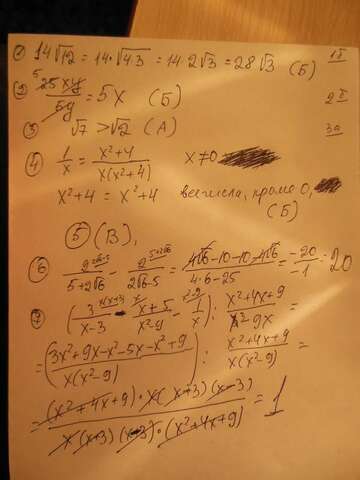 ① 14√12 = 14·√4·3 = 14 2√3 = 28√3 (Б) 1Б
② 25xy/5y = 5x (Б) 2Б
5
③ √7 > √2 (А) 3а
④ 1/x = x²+4/x(x²+4) x≠0
x²+4 = x²+4 все числа, кроме 0,
(Б)
⑤ (В),
⑥ 2/5+2√6 - 2/2√6-5 = 4√6-10-10-4√6/4·6-25 = -20/-1 = 20
⑦ (3/x-3 - x+5/x²-9 - 1/x) : x²+4x+9/x³-9x =
= (3x²+9x-x²-5x-x²+9/x(x²-9)) : x²+4x+9/x(x²-9) =
= (x²+4x+9)·x(x+3)(x-3)/x(x+3)(x-3)·(x²+4x+9) = 1